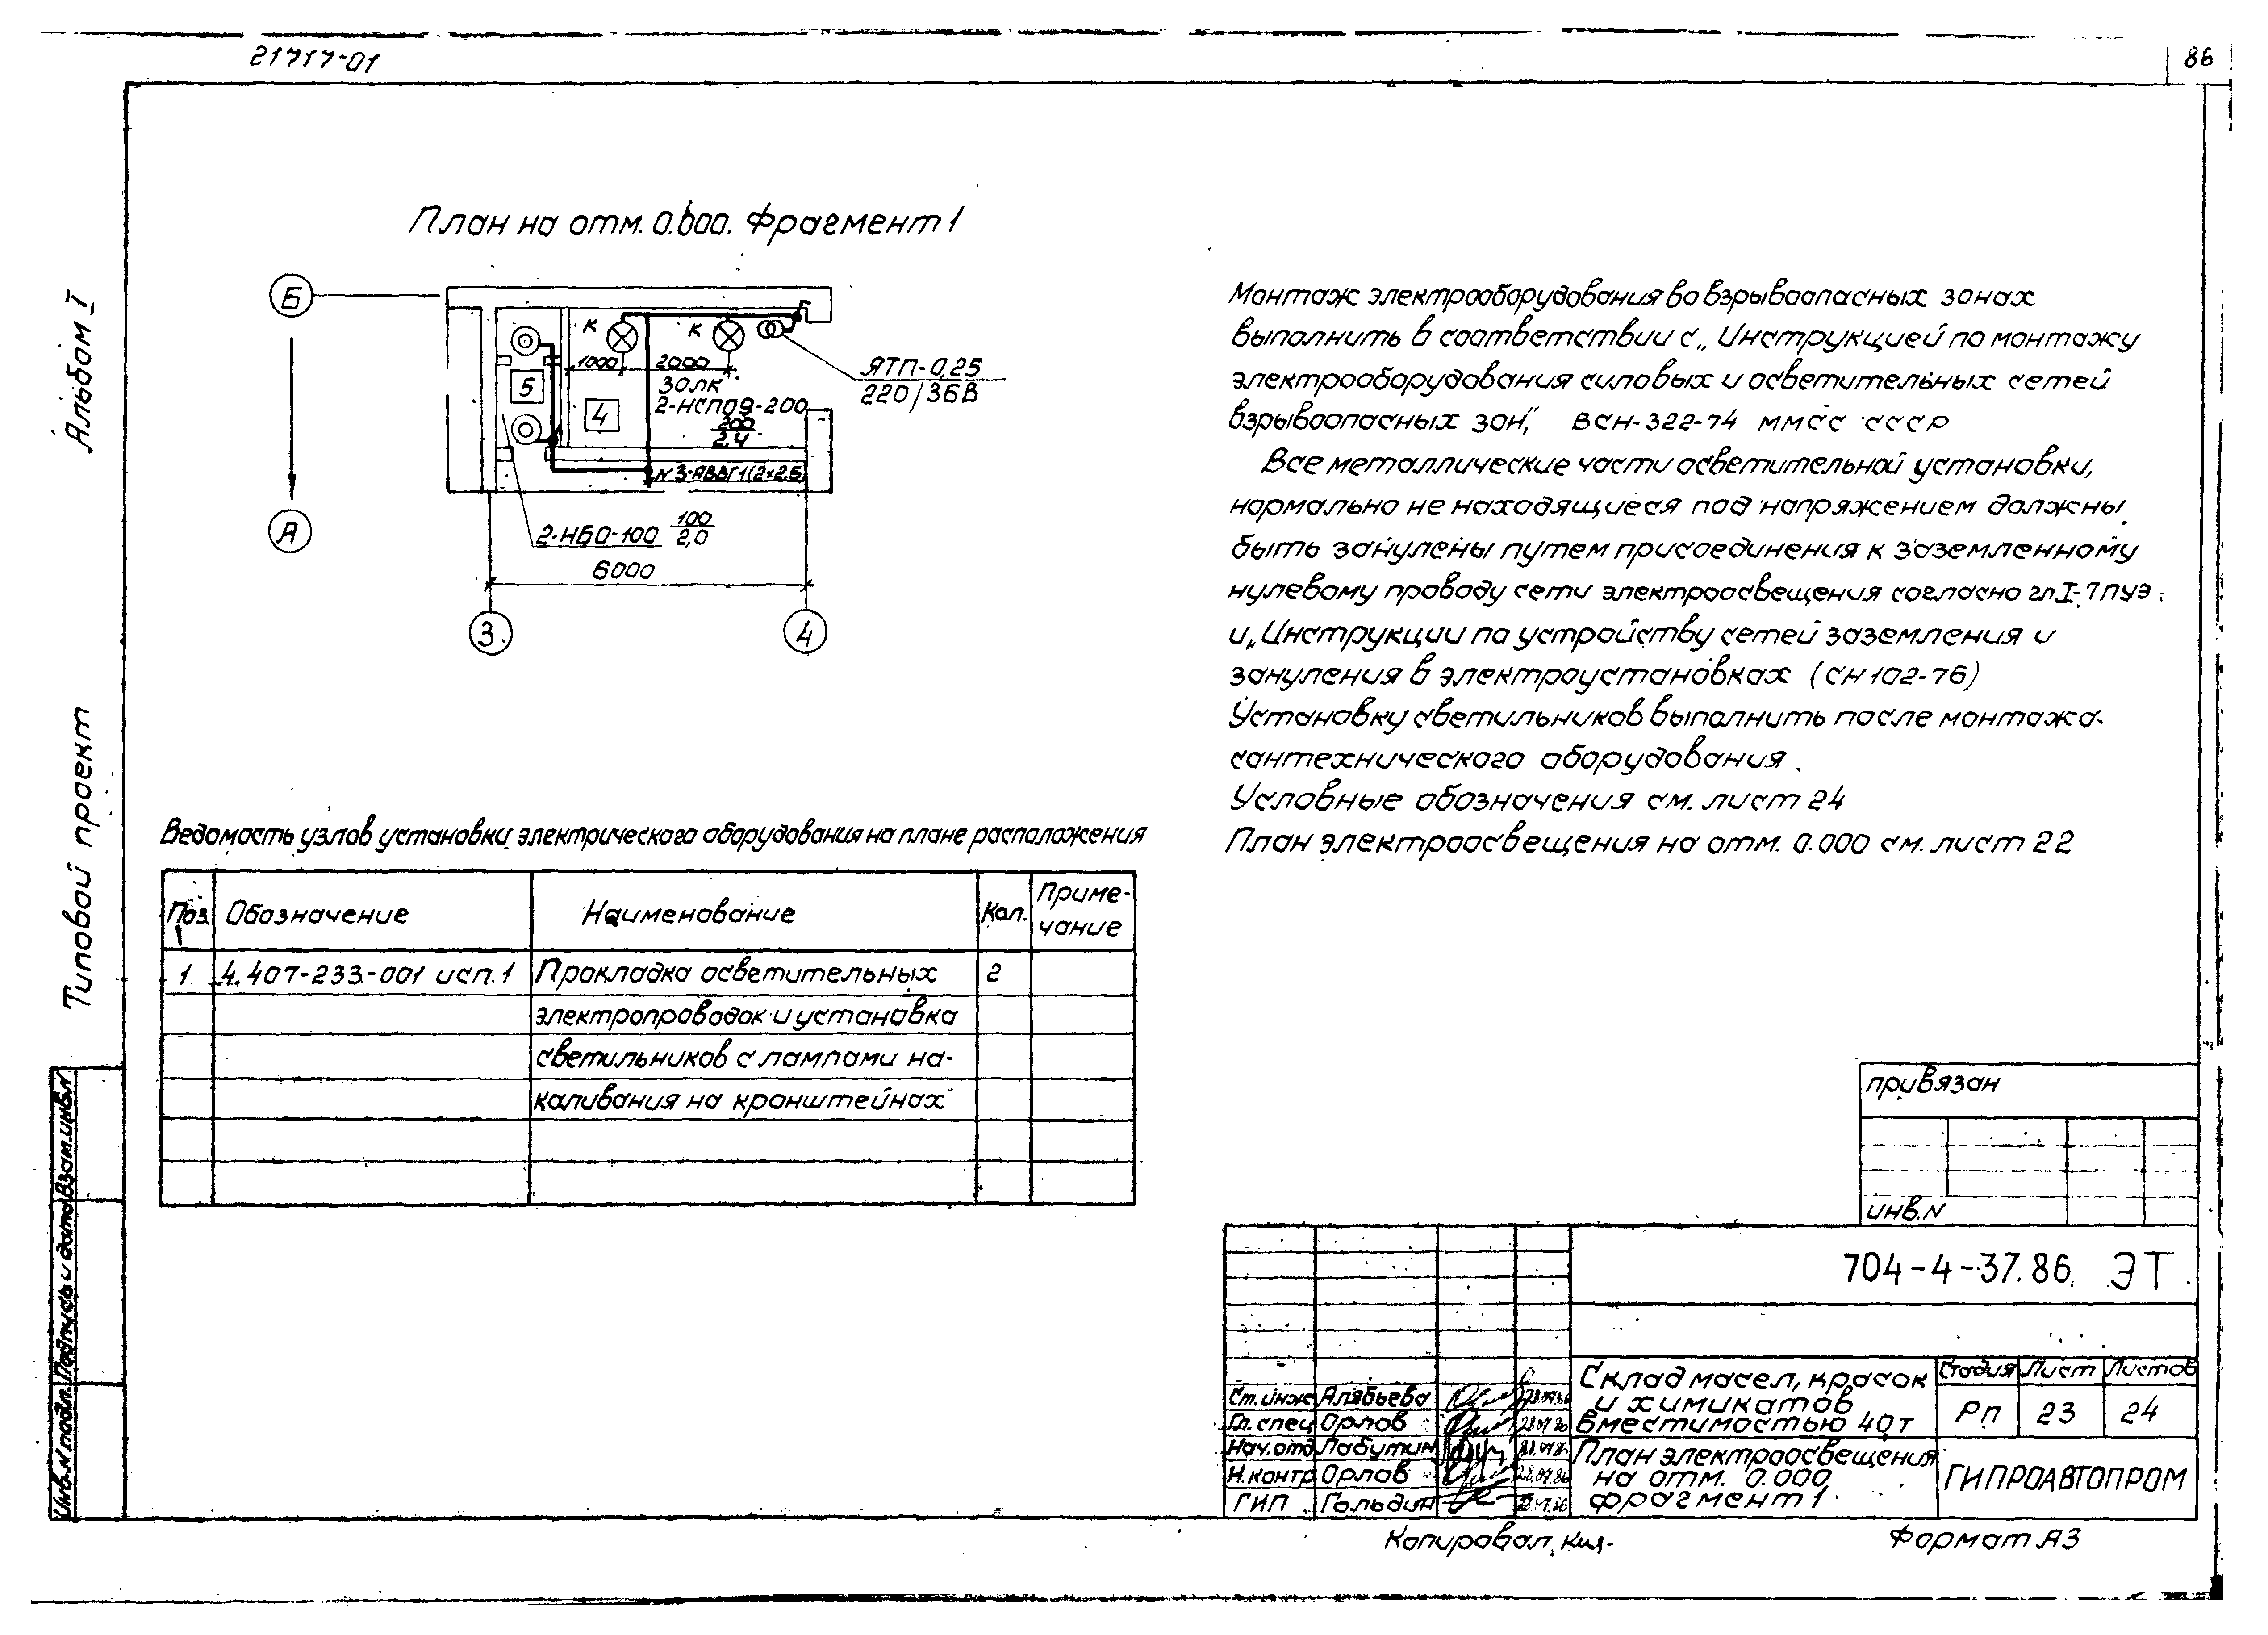 21717-01
86
Альбом I
Типовой проект
План на отм. 0.000. Фрагмент 1
Б
А
К
К
1000
2000
30лк
2-НСП09-200
200
2,4
5
4
ЯТП-0,25
220/36В
N3-АВВГ1(2×2,5)
2-НБО-100 100
2,0
6000
3
4
Монтаж электрооборудования во взрывоопасных зонах
выполнить в соответствии с „Инструкцией по монтажу
электрооборудования силовых и осветительных сетей
взрывоопасных зон", ВСН-322-74 ММСС СССР
Все металлические части осветительной установки,
нормально не находящиеся под напряжением должны
быть занулены путем присоединения к заземленному
нулевому проводу сети электроосвещения согласно гл I-7 ПУЭ
и „Инструкции по устройству сетей заземления и
зануления в электроустановках (СН 102-76)
Установку светильников выполнить после монтажа
сантехнического оборудования.
Условные обозначения см. лист 24
План электроосвещения на отм. 0.000 см. лист 22
Ведомость узлов установки электрического оборудования на плане расположения
Поз. Обозначение Наименование Кол. Приме-
чание
1 4.407-233-001 исп.1 Прокладка осветительных 2
электропроводок и установка
светильников с лампами на-
каливания на кронштейнах
привязан
инв.N
704-4-37.86 ЭТ
Ст.инж Алябьева 28.07.86
Гл.спец Орлов 28.07.86
Нач.отд Лабутин 28.07.86
Н.контр Орлов 28.07.86
ГИП Гольдин 28.07.86
Склад масел, красок
и химикатов
вместимостью 40т
Стадия Лист Листов
РП 23 24
План электроосвещения
на отм. 0.000
фрагмент 1
ГИПРОАВТОПРОМ
Инв.N подл. Подпись и дата Взам.инв.N
Копировал
Формат А3